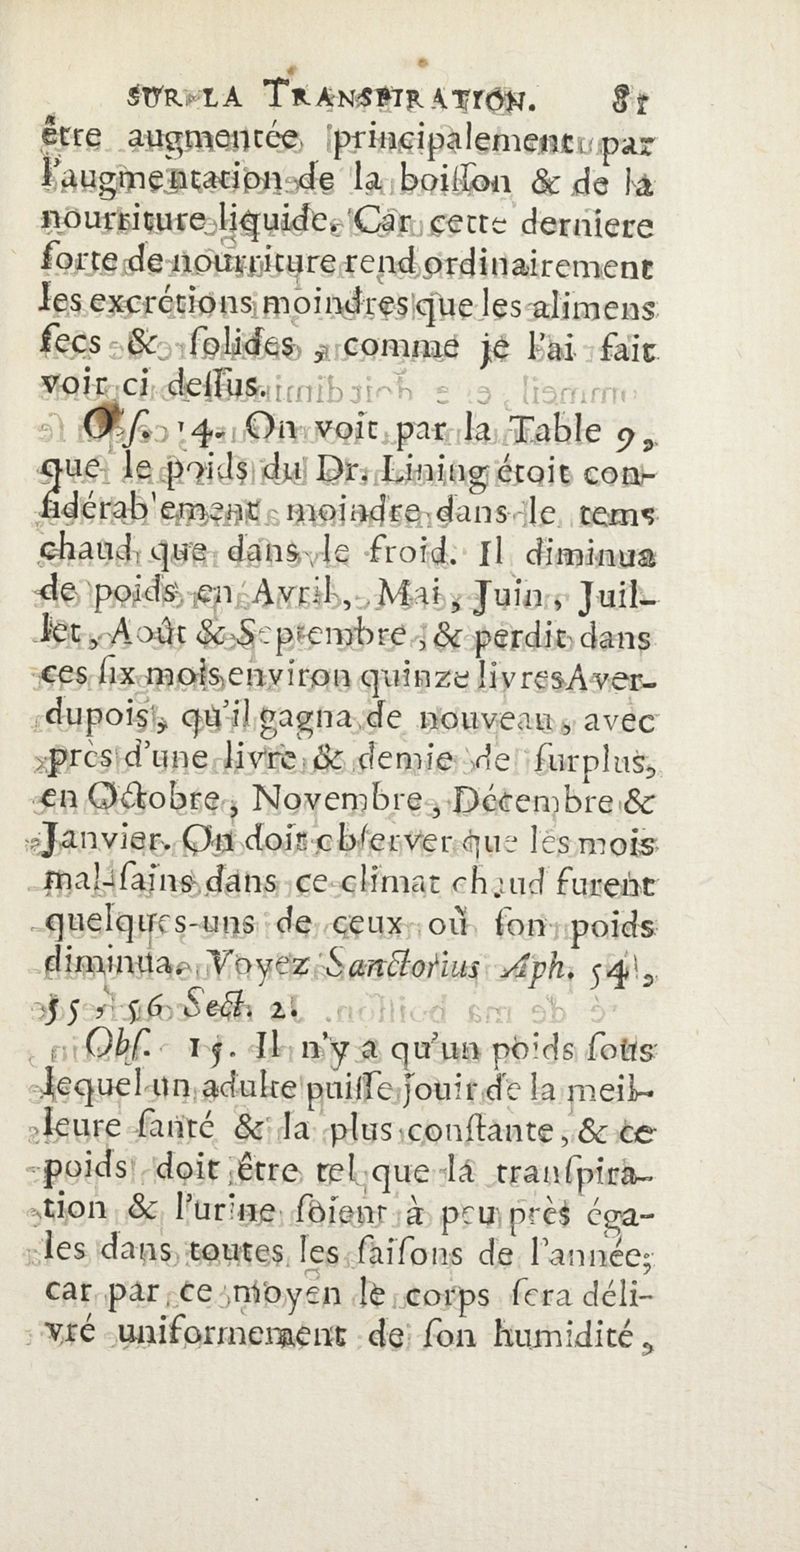 SUR LA TRANSPIRATION. 81
être augmentée principalement par
l'augmentation de la boisson & de la
nourriture liquide. Car cette derniere
sorte de nourriture rend ordinairement
les excrétions moindres que les alimens
secs & solides, comme je l'ai fait
voir ci dessus.
Obs. 14. On voit par la Table 9,
que le poids du Dr. Lining étoit con-
sidérab'ement moindre dans le tems
chaud que dans le froid. Il diminua
de poids en Avril, Mai, Juin, Juil-
let, Août & Septembre, & perdit dans
ces six mois environ quinze livres Aver-
dupois, qu'il gagna de nouveau, avec
près d'une livre & demie de surplus,
en Octobre, Novembre, Décembre &
Janvier. On doit observer que les mois
mal-sains dans ce climat chaud furent
quelques-uns de ceux où son poids
diminua. Voyez Sanctorius Aph. 54,
55, 56 Sect. 2.
Obs. 15. Il n'y a qu'un poids sous
lequel un adulte puisse jouir de la meil-
leure santé & la plus constante, & ce
poids doit être tel que la transpira-
tion & l'urine soient à peu près éga-
les dans toutes les saisons de l'année;
car par ce moyen le corps sera déli-
vré uniformement de son humidité,